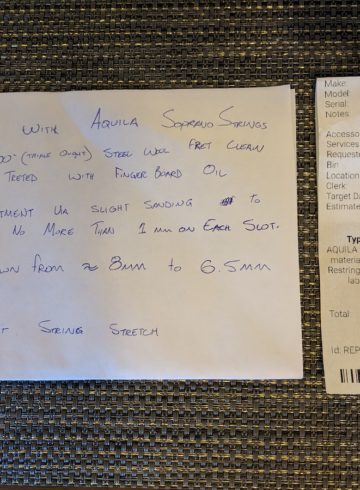 WITH AQUILA SOPRANO STRINGS
STEEL WOOL FRET CLEAN
TRETED WITH FINGER BOARD OIL
SLIGHT SANDING TO
NO MORE THAN 1 MM ON EACH SLOT.
FROM ≈ 8MM TO 6.5MM
STRING STRETCH
Make:
Model:
Serial:
Notes:
Accesso
Services
Request
Bin
Location
Clerk
Target Da
Estimate
Typ
AQUILA
materia
Restring
la
Total
Id: REP